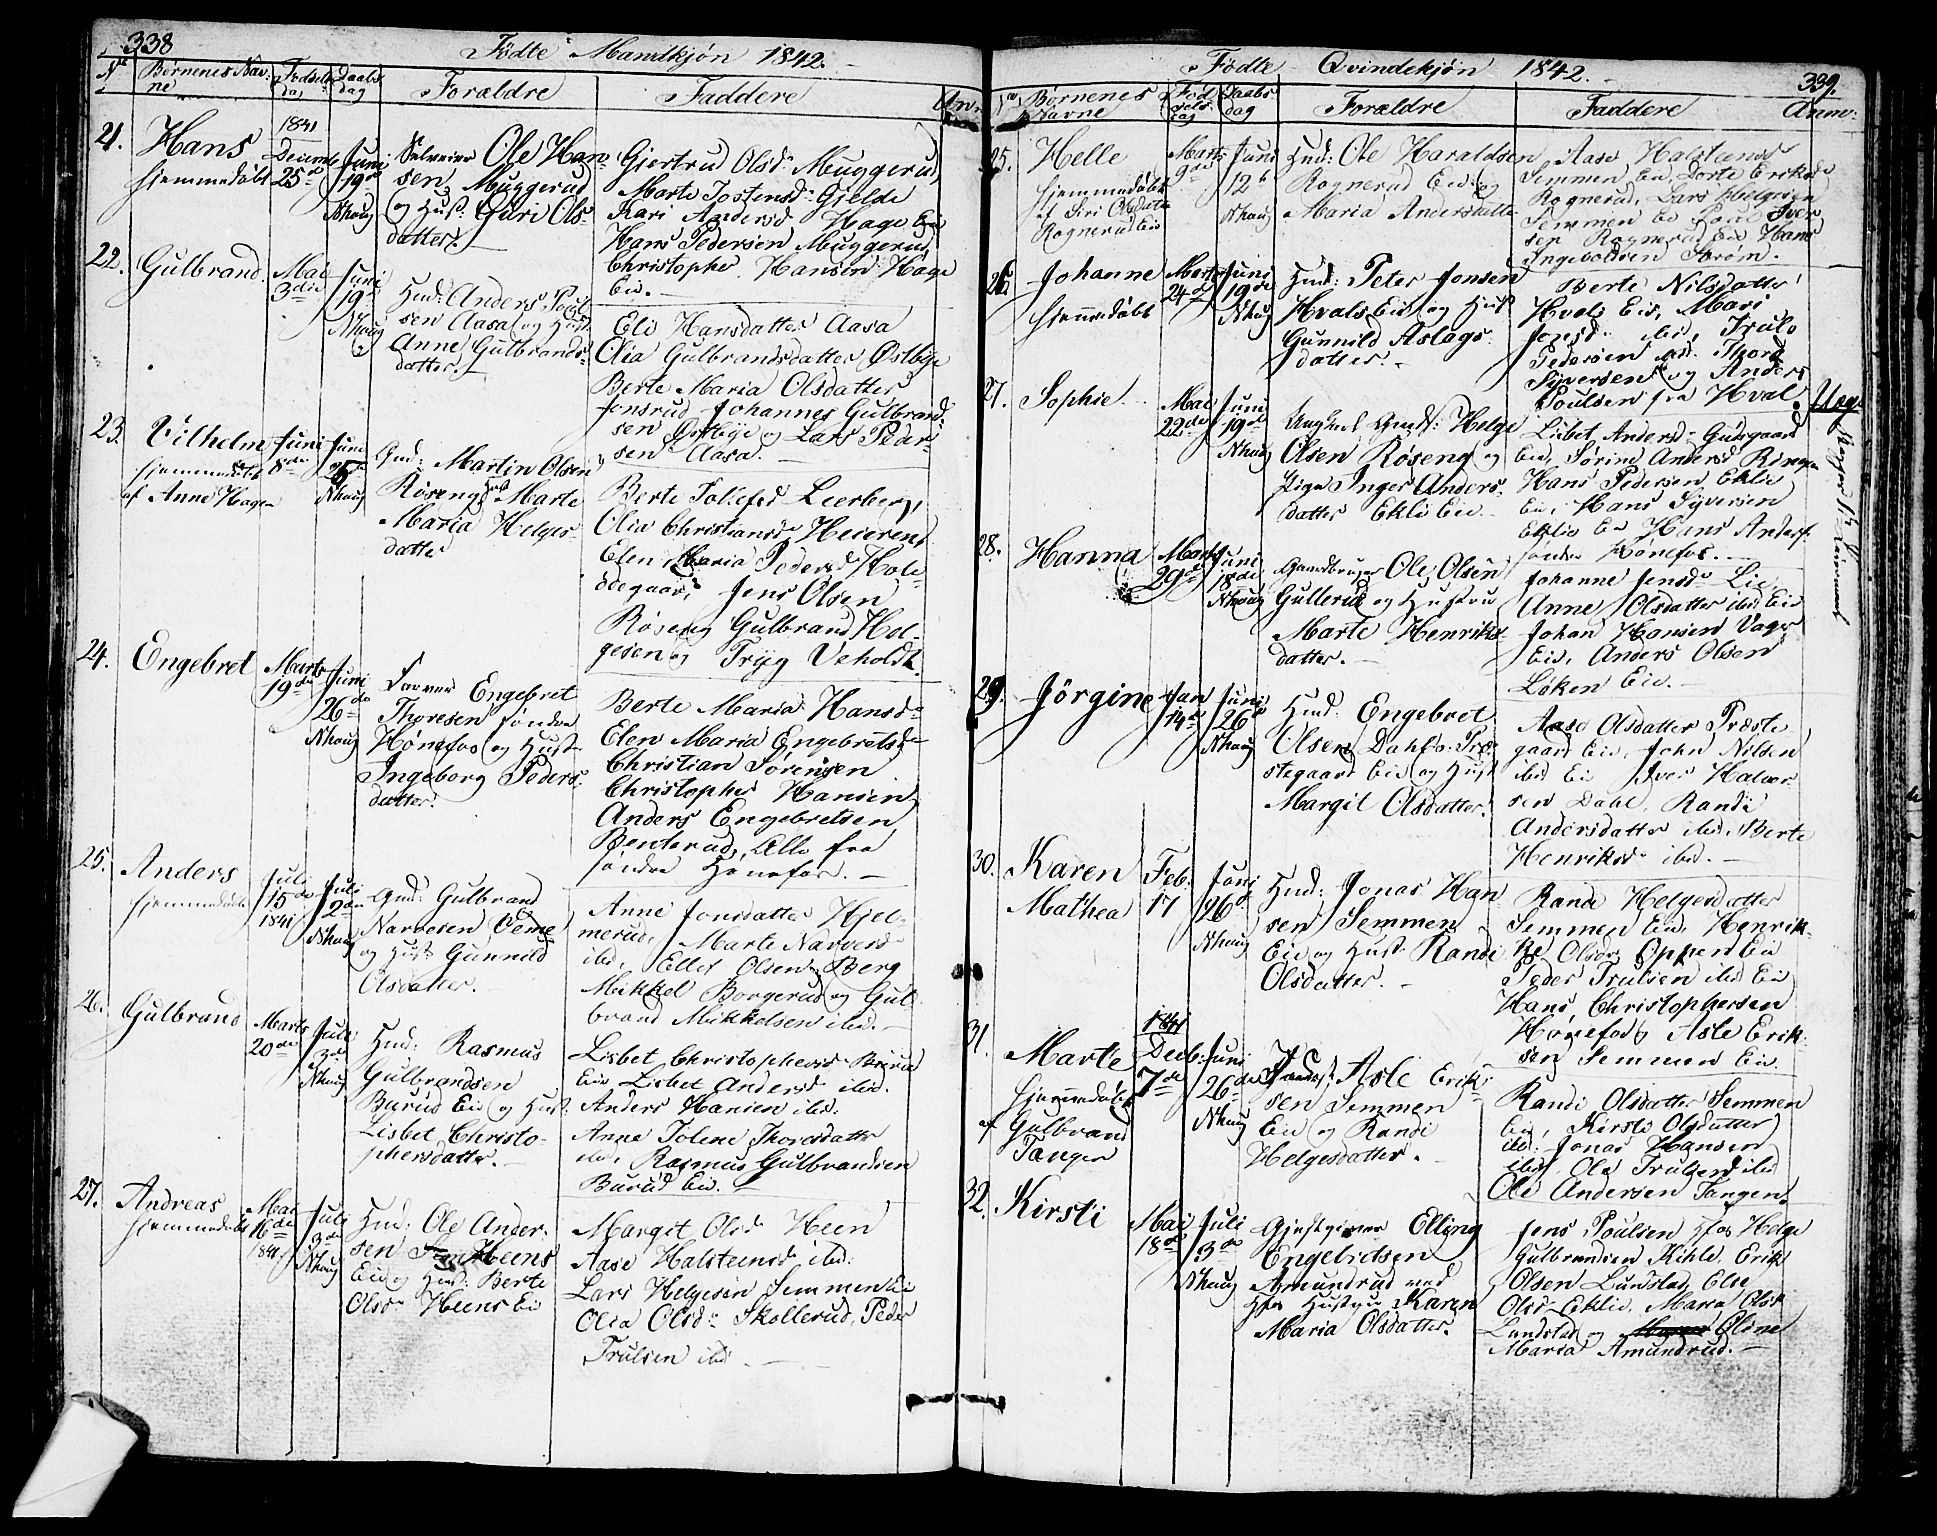 338
Födte Mandkjön 1842.
No Börnenes Navne Födselsdag Daabsdag Forældre Faddere Anm.
21. Hans
hjemmedöbt
1841
Decemb
25de
Juni
19de
Nhaug
Selveier Ole Han-
sen Muggerud
og Hust: Guri Ols-
datter.
Gjertrud Olsdr Muggerud,
Marte Jostensdr Gjelde
Kari Andersd Hage Eie
Hans Pedersen Muggerud,
Christopher Hansen Hage
Eie.
22. Gulbrand
Mai
3die
Juni
19de
Nhaug
Hmd: Anders Peder
sen Aasa og Hust
Anne Gulbrands-
datter.
Eli Hansdatter Aasa
Olia Gulbrandsdatter Östbye
Berte Maria Olsdatter
Jonsrud Johannes Gulbrand-
sen Östbye og Lars Peder
sen Aasa.
23. Vilhelm
hjemmedöbt
af Anne Hagen
Juni
8de
Juni
Nhaug
Gmd: Martin Olsen
Röseng Hust Marte
Maria Helges-
datter
Berte Tollefsd Leerberg,
Olia Christiansdr Heieren,
Elen Maria Pedersd Hole-
Jens Olsen
Röseng Gulbrand Hel-
gesen og Tryg Veholdt.
24. Engebret
Marts
19de
Juni
26de
Nhaug
Farver Engebret
Thoresen söndre
Hönefos og Hust
Ingeborg Peders-
datter.
Berte Maria Hansdr
Elen Maria Engebretsdr
Christian Sörensen
Christopher Hansen,
Anders Engebretsen
Benterud, Alle fra
söndre Hönefos.
25. Anders
hjemmedöbt
Juli
15de
1841
Juli
2den
Nhaug
Gmd: Gulbrand
Narvesen Veme
og Hust Gunnild
Olsdatter.
Anne Jonsdatter Hjel-
merud, Marte Narvesdr
ibd, Ellef Olsen Berg
Mikkel Borgerud og Gul
brand Mikkelsen ibd.
26. Gulbrand
Marts
20de
Juli
3de
Nhaug
Hmd: Rasmus
Gulbrandsen
Burud Eie og Hust
Lisbet Christo-
phersdatter.
Lisbet Christophersd Burud
Eie Lisbet Andersd ibd.
Anders Hansen ibd:
Anne Jolene Thoresdatter
ibd, Rasmus Gulbrandsen
Burud Eie.
27. Andreas
hjemmedöbt
Mai
16de
1841
Juli
3de
Nhaug
Hmd: Ole Ander-
sen Heens
Eie og Hust: Berte
Olsdr Heens Eie
Margit Olsdr Heen
Aase Halsteinsd ibd:
Lars Helgesen Semmen Eie
Olia Olsdr Skollerud, Peder
Trulsen ibd
339.
Födte Qvindekjön 1842.
No Börnenes Navne Födselsdag Daabsdag Forældre Faddere Anm:
25. Helle
hjemmedöbt
af Siri Olsdatter
Rognerud Eie
Marts
9de
Juni
12te
Nhaug
Hmd: Ole Haraldsen
Rognerud Eie: og
Maria Andersdatter
Aase Halsteinsd
Semmen Eie, Dorte Eriksdr
Rognerud, Lars Helgesen
Semmen Eie Iver
sen Rognerud Eie Hans
Ingevoldsen Ström.
26. Johanne
hjemmedöbt
Marts
24de
Juni
19de
Nhaug
Hmd: Peter Jonsen
Hvals Eie og Hust
Gunnild Aslags-
datter.
Berte Nilsdatter
Hvals Eie, Mari
Jensdr ibd, Truls
Pedersen ibd. Thord
Syversen og Anders
Poulsen fra Hval
27. Sophie
Mai
22de
Juni
19de
Nhaug
Ungkarl Helge
Olsen Röseng og
Pige Inger Anders-
datter Ekli Eie
Lisbet Andersd
Eie, Sörine Andersd
Hans Pedersen Eklie
Eie, Hans Syversen
Eklie Eie Hans Anders
söndre Hönefos.
Uægte
28. Hanna
Marts
29de
Juni
18de
Nhaug
Gaardbruger Ole Olsen
Gullerud og Hustru
Marte Henriks-
datter.
Johanne Jensdr Lie,
Anne Olsdatter ibd Eie
Johan Hansen Vager
Eie, Anders Olsen
Löken Eie.
29. Jörgine
Jan
14de
Juni
26de
Nhaug
Hmd: Engebret
Olsen Dahl Præ-
stegaard Eie og Hust
Margit Olsdatter.
Aase Olsdatter Præste
gaard Eie, John Nilsen
ibd Eie Iver Halvor
sen Dahl, Randi
Andersdatter ibd, Berte
Henriksdr ibd.
30. Karen
Mathea
Feb.
17
Juni
26de
Nhaug
Hmd: Jonas Han
sen Semmen
Eie og Hust Randi
Olsdatter.
Randi Helgesdatter
Semmen Eie, Henrik-
ke Olsdr Oppen Eie
Peder Trulsen ibd Eie
Hans Christophersen
Hönefos, Asle Erik-
sen Semmen Eie.
31. Marte
hjemmedöbt
af
Gulbrand
Tangen
1841
Decb:
7de
Juni
26de
Nhaug
Asle Erik-
sen Semmen
Eie og Randi
Helgesdatter.
Randi Olsdatter Semmen
Eie, Kirsti Olsdatter
ibd: Jonas Hansen
ibd, Ole Trulsen ibd
Ole Andersen Tangen.
32. Kirsti
Mai
18de
Juli
3de
Nhaug
Gjestgiver Elling
Engebretsen
Amundrud med
Hustru Karen
Maria Olsdatter.
Jens Poulsen Hfos Helge
Gulbrandsen Kihle, Erik
Olsen Lundstad, Else
Olsdr Eklie, Maria Olsd
Lundstad og Oline
Maria Amundrud.